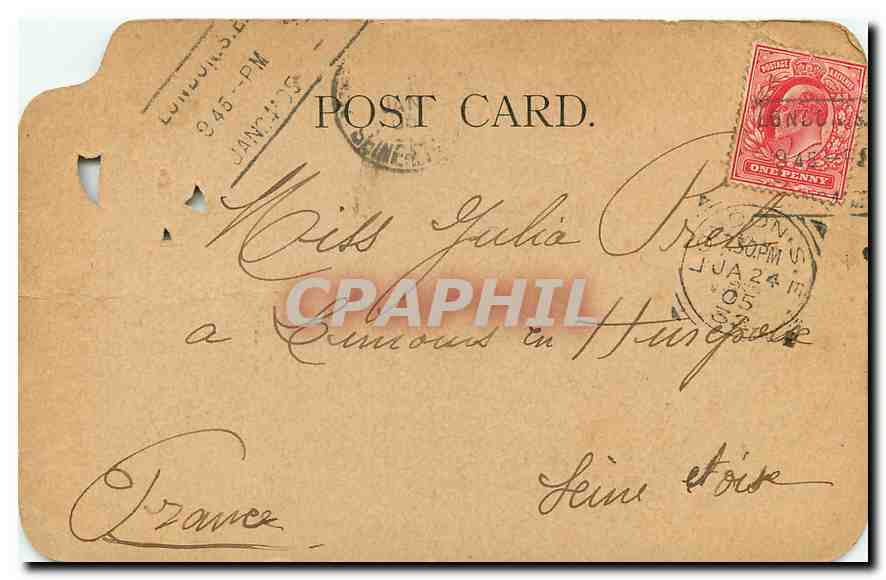 LONDON.S.E.
9 45--PM
JAN
POST CARD.
POSTAGE
ONE PENNY
LONDON.S.
9 45
LONDON.S.E.
30.PM
JA 24
05
Miss Julia Prel
CPAPHIL
a Limours en Hurepoix
Seine et oise
France